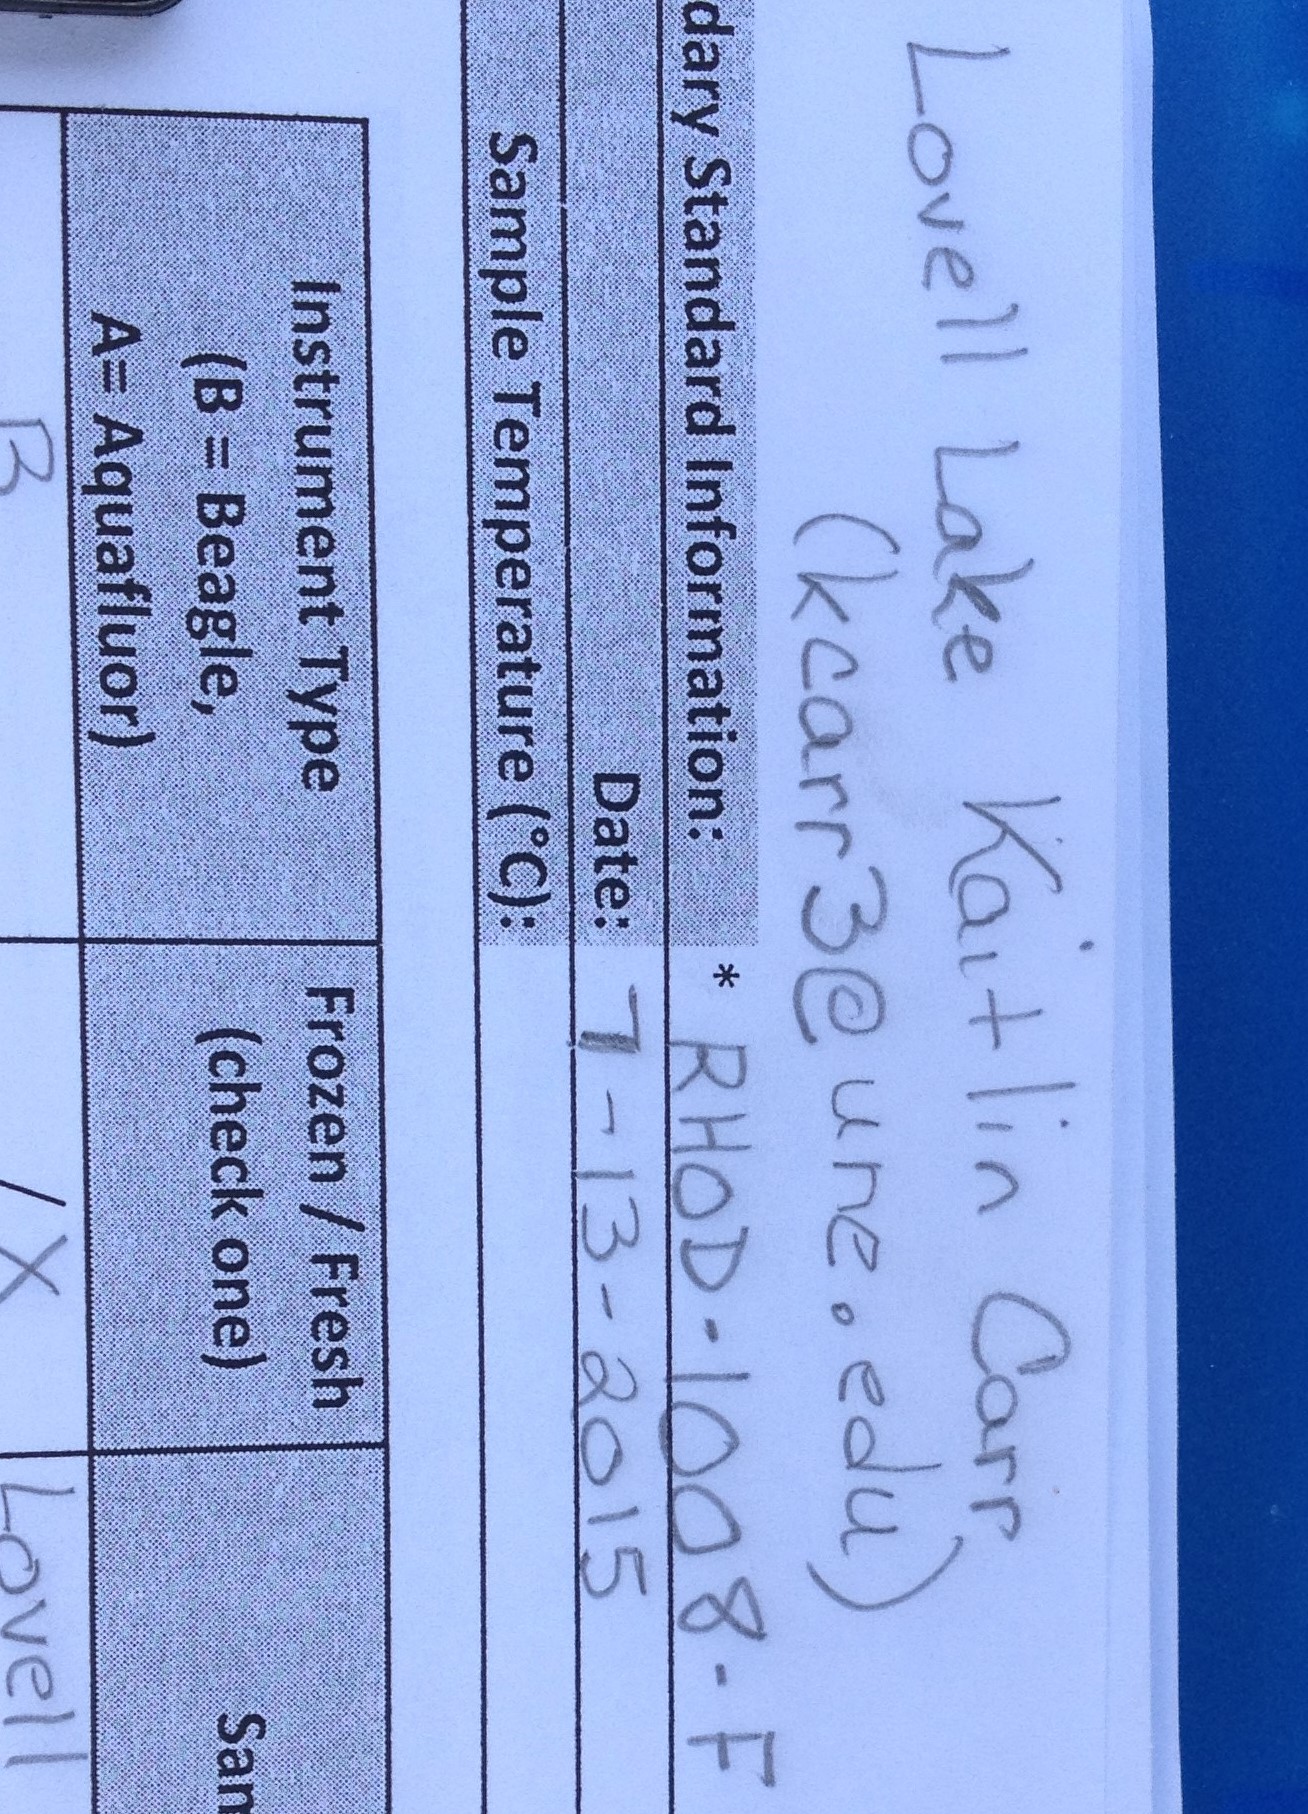 Lovell Lake Kaitlin Carr
(kcarr3@une.edu)
dary Standard Information: * RHOD-1008-F
Date: 7-13-2015
Sample Temperature (°C):
Instrument Type
(B = Beagle,
A= Aquafluor)
Frozen / Fresh
(check one)
Sam
B
/ X
Lovell